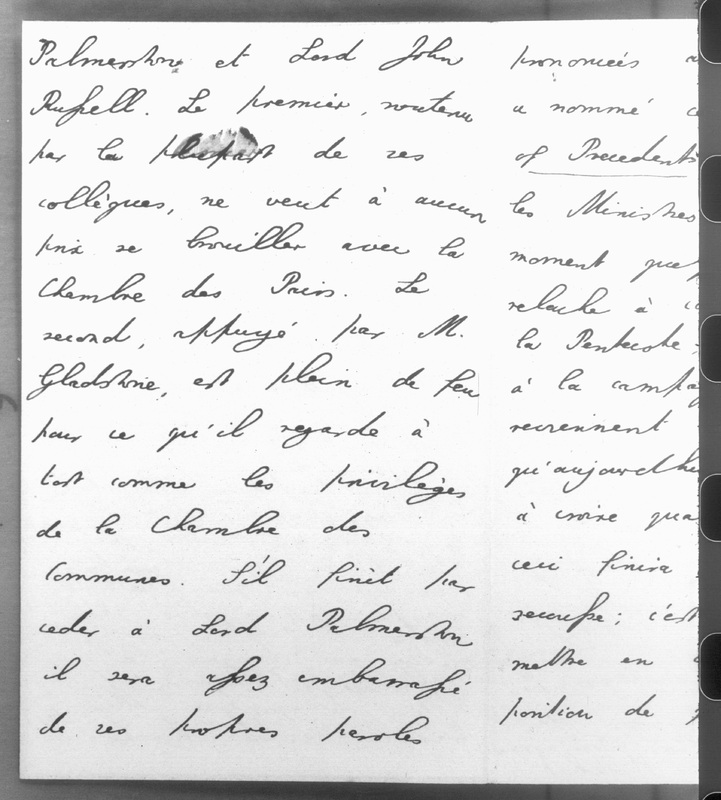 Palmerston et Lord John
Russell. Le premier, soutenu
par la plupart de ses
collègues, ne veut à aucun
prix se brouiller avec la
Chambre des Pairs. Le
second, appuyé par M.
Gladstone, est plein de feu
pour ce qu'il regarde à
tort comme les privilèges
de la Chambre des
Communes. S'il finit par
ceder à Lord Palmerston
il sera assez embarrassé
de ses propres paroles
prononcées
a nommé
of Precedents
les Ministres
moment que
relache à
la Pentecote
à la campa
reviennent
qu'aujourd'hu
à croire que
ceci finira
secousse; c'est
mettre en
position de